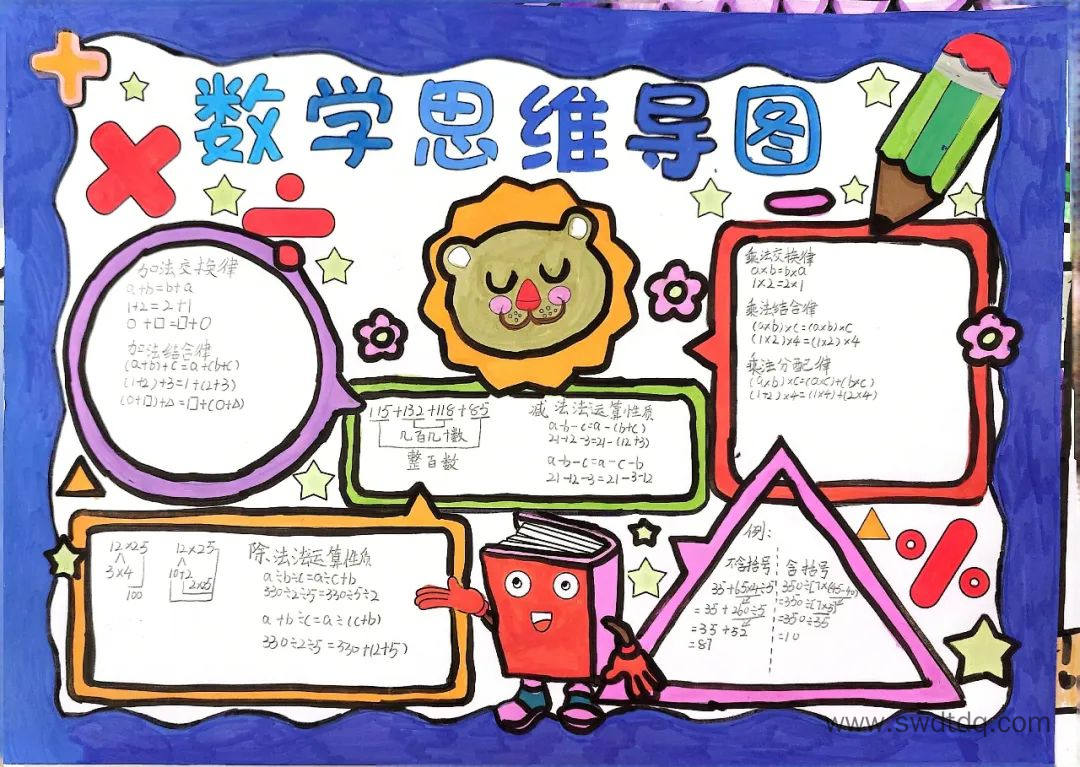 数学思维导图
加法交换律
a+b=b+a
1+2=2+1
○+□=□+○
加法结合律
(a+b)+c=a+(b+c)
(1+2)+3=1+(2+3)
(○+□)+△=□+(○+△)
115+132+118+85
几百几十数
整百数
减法法运算性质
a-b-c=a-(b+c)
21-12-3=21-(12+3)
a-b-c=a-c-b
21-12-3=21-3-12
乘法交换律
a×b=b×a
1×2=2×1
乘法结合律
(a×b)×c=(a×b)×c
(1×2)×4=(1×2)×4
乘法分配律
(a×b)×c=(a×c)+(b×c)
(1+2)×4=(1×4)+(2×4)
12×25
3×4
100
12×25
10+2
2×25
除法法运算性质
a÷b÷c=a÷c÷b
330÷2÷5=330÷5÷2
a÷b÷c=a÷(c+b)
330÷2÷5=330+(2+5)
例:
不含括号
35+65×4÷5
=35+260÷5
=35+52
=87
含括号
350÷[7×(45-40)]
=350÷[7×5]
=350÷35
=10
www.swdtdq.com